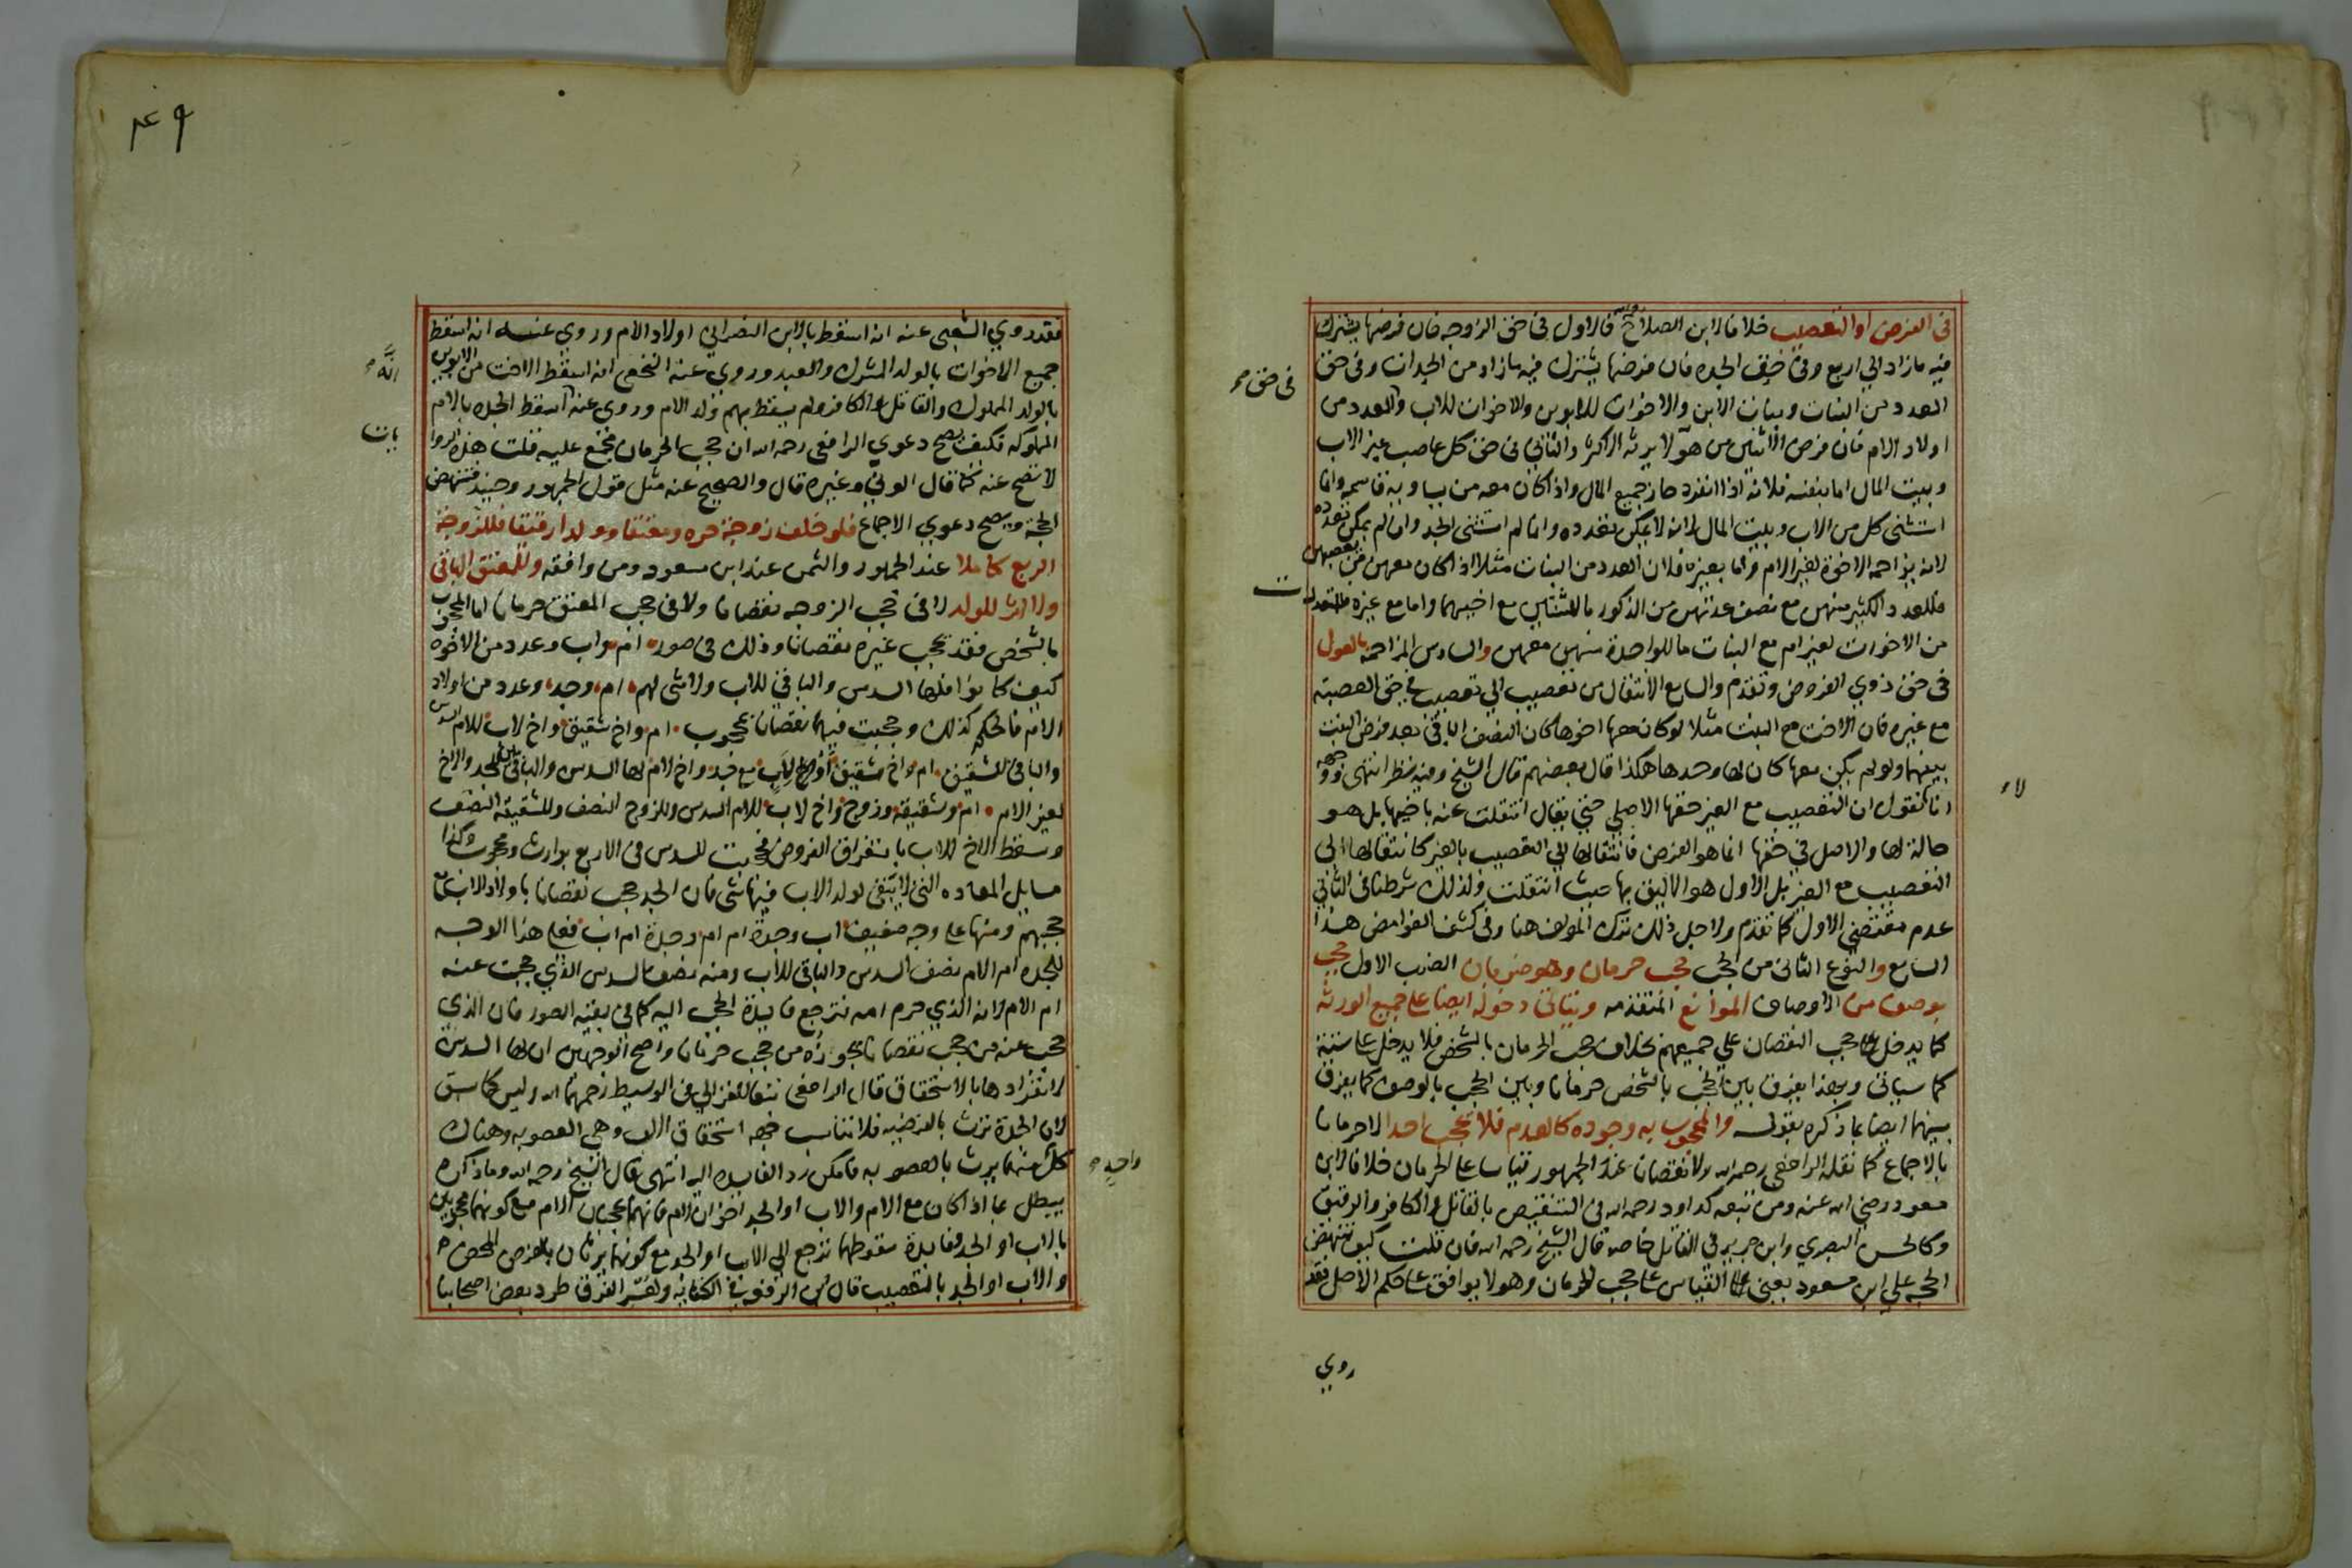 في الفرض او التعصيب خلافا لابن الصلاح فالاول في حق الزوجه فان فرضها يشترك
فيه مازاد الي اربع وفي حق الجده فان فرضها يشترك فيه مازاد من الجدات وفي حق
العدد من البنات وبنات الابن والاخوات للابوين والاخوات للاب والعدد من
اولاد الام فان فرض الاثنين من هولا يرثه الاكثر والثاني في حق كل عاصب غير الاب
وبيت المال اما بنفسه فلانه اذا انفرد حاز جميع المال واذا كان معه من يساويه قاسمه وانما
استثنى كل من الاب وبيت المال لانه لا يمكن تعدده وانما لم استثنى الجد وان لم يمكن تعدده
لانه يزاحمه الاخوة لغير الام واما بغيره فلان العدد من البنات مثلا اذا كان معهن من يعصبهن
فللعدد الكثير منهن مع نصف عدتهن من الذكور ما للثنتين مع اخيهما واما مع غيره فللمتعددات
من الاخوات لغير ام مع البنات ما للواحدة منهن معهن والسادس المزاحمه بالعول
في حق ذوي الفروض وتقدم والسابع الانتقال من تعصيب الي تعصيب في حق العصبته
مع غيره فان الاخت مع البنت مثلا لو كان معها اخوها كان النصف الباقي بعد فرض البنت
بينهما ولو لم يكن معها كان لها وحدها هكذا قال بعضهم قال الشيخ وفيه نظر انتهى ووجهه
انا لا نقول ان التعصيب مع الغير حقها الاصلي حتى يقال انتقلت عنه باخيها بل هو
حالة لها والاصل في حقها انما هو الفرض فانتقالها الي التعصيب بالغير كانتقالها الى
التعصيب مع الغير بل الاول هو الاليق بها حيث انتقلت ولذلك شرطنا في الثاني
عدم مقتضي الاول كما تقدم ولاجل ذلك ترك المولف هنا وفي كشف الغوامض هذا
السابع والنوع الثاني من الحجب حجب حرمان وهو ضربان الضرب الاول حجب
بوصف من الاوصاف الموانع المتقدمه ويتاتى دخوله ايضا على جميع الورثه
كما يدخل حجب النقصان علي جميعهم بخلاف حجب الحرمان بالشخص فلا يدخل على ستة
كما سياتي وبهذا يفرق بين الحجب بالشخص حرمانا وبين الحجب بالوصف كما يفرق
بينهما ايضا بما ذكره بقوله والمحجوب به وجوده كالعدم فلا يحجب احدا لا حرمانا
بالاجماع كما نقله الرافعى رحمه الله ولا نقصانا عند الجمهور قياسا على الحرمان خلافا لابن
مسعود رضي الله عنه ومن تبعه كداود رحمه الله في التنقيص بالقاتل والكافر والرقيق
وكالحسن البصري وابن جرير في القاتل خاصه قال الشيخ رحمه الله فان قلت كيف تنتهض
الحجه علي ابن مسعود يعني القياس على حجب الحرمان وهو لا يوافق على حكم الاصل فقد
في حق
لا
روي
٤٩
فقد روي الشعبي عنه انه اسقط بالابن النصراني اولاد الام وروي عنه انه اسقط
جميع الاخوات بالولد المشرك والعبد وروي عنه النخعى انه اسقط الاخت من الابوين
بالولد المملوك والقاتل والكافر ولم يسقط بهم ولد الام وروى عنه اسقط الجدة بالام
المملوكه فكيف يصح دعوي الرافعى رحمه الله ان حجب الحرمان مجمع عليه قلت هذه الروا
لا تصح عنه كما قال الوني وغيره قال والصحيح عنه مثل قول الجمهور وحينئذ فتنهض
الحجة ويصح دعوي الاجماع فلو خلف زوجة حره ومعتقا وولدا رقيقا فللزوجة
الربع كاملا عند الجمهور والثمن عند ابن مسعود ومن وافقه وللمعتق الباقي
ولا اثر للولد لا في حجب الزوجه نقصانا ولا في حجب المعتق حرمانا اما المحجوب
بالشخص فقد يحجب غيره نقصانا وذلك في صور ام واب وعدد من الاخوه
كيف كانوا فلها السدس والباقي للاب ولا شي لهم ام وجد وعدد من اولاد
الام فالحكم كذلك وحجبت فيهما نقصانا بمحجوب ام واخ شقيق واخ لاب للام السدس
والباقي للشقيق ام واخ شقيق او لاب مع جد واخ لام لها السدس والباقي بين الجد والاخ
لغير الام ام وشقيقة وزوج واخ لاب للام السدس وللزوج النصف وللشقيقة النصف
وسقط الاخ للاب باستغراق الفروض فحجبت للسدس في الاربع بوارث ومحجوب وكذا
مسايل المعاده التي لا يبقى لولد الاب فيها شى فان الجد حجب نقصانا باولاد الاب مع
حجبهم ومنها على وجه ضعيف اب وجدة ام ام وجدة ام اب فعلى هذا الوجه
للجده ام الام نصف السدس والباقي للاب ومنه نصف السدس الذي حجبت عنه
ام الام لانه الذي حرم امه فترجع فايدة الحجب اليه كما في بقية الصور فان الذي
حجب عنه من حجب نقصانا يحوزه من حجب حرمانا واصح الوجهين ان لها السدس
لانفرادها بالاستحقاق قال الرافعى تبعا للغزالي في الوسيط رحمهما الله وليس كما سبق
لان الجدة ترث بالفرضيه فلا تناسب جهه استحقاق الاب وهي العصوبه وهناك
كل منهما يرث بالعصوبه فامكن رد الفايده اليه انتهى قال الشيخ رحمه الله وما ذكره
يبطل بما اذا كان مع الام والاب او الجد اخوان لام فانهما يحجبان الام مع كونهما محجوبين
بالاب او الجد وفايدة سقوطهما ترجع الي الاب او الجد مع كونهما يرثان بالفرض المحض
والاب او الجد بالتعصيب قال ابن الرفعه في الكفايه ولعسر الفرق طرد بعض اصحابنا
انه
يات
واحد